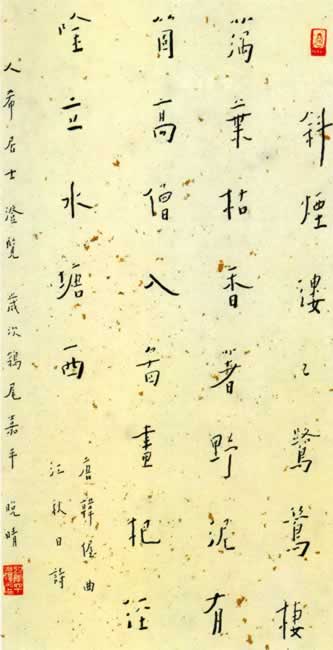 斜煙縷〻鷺鷥棲
藕葉枯香著野泥有
箇高僧入圖畫把經
唫立水塘西
唐韓偓曲
江秋日詩
人希居士澄覽 歲次鶉尾嘉平 晚晴